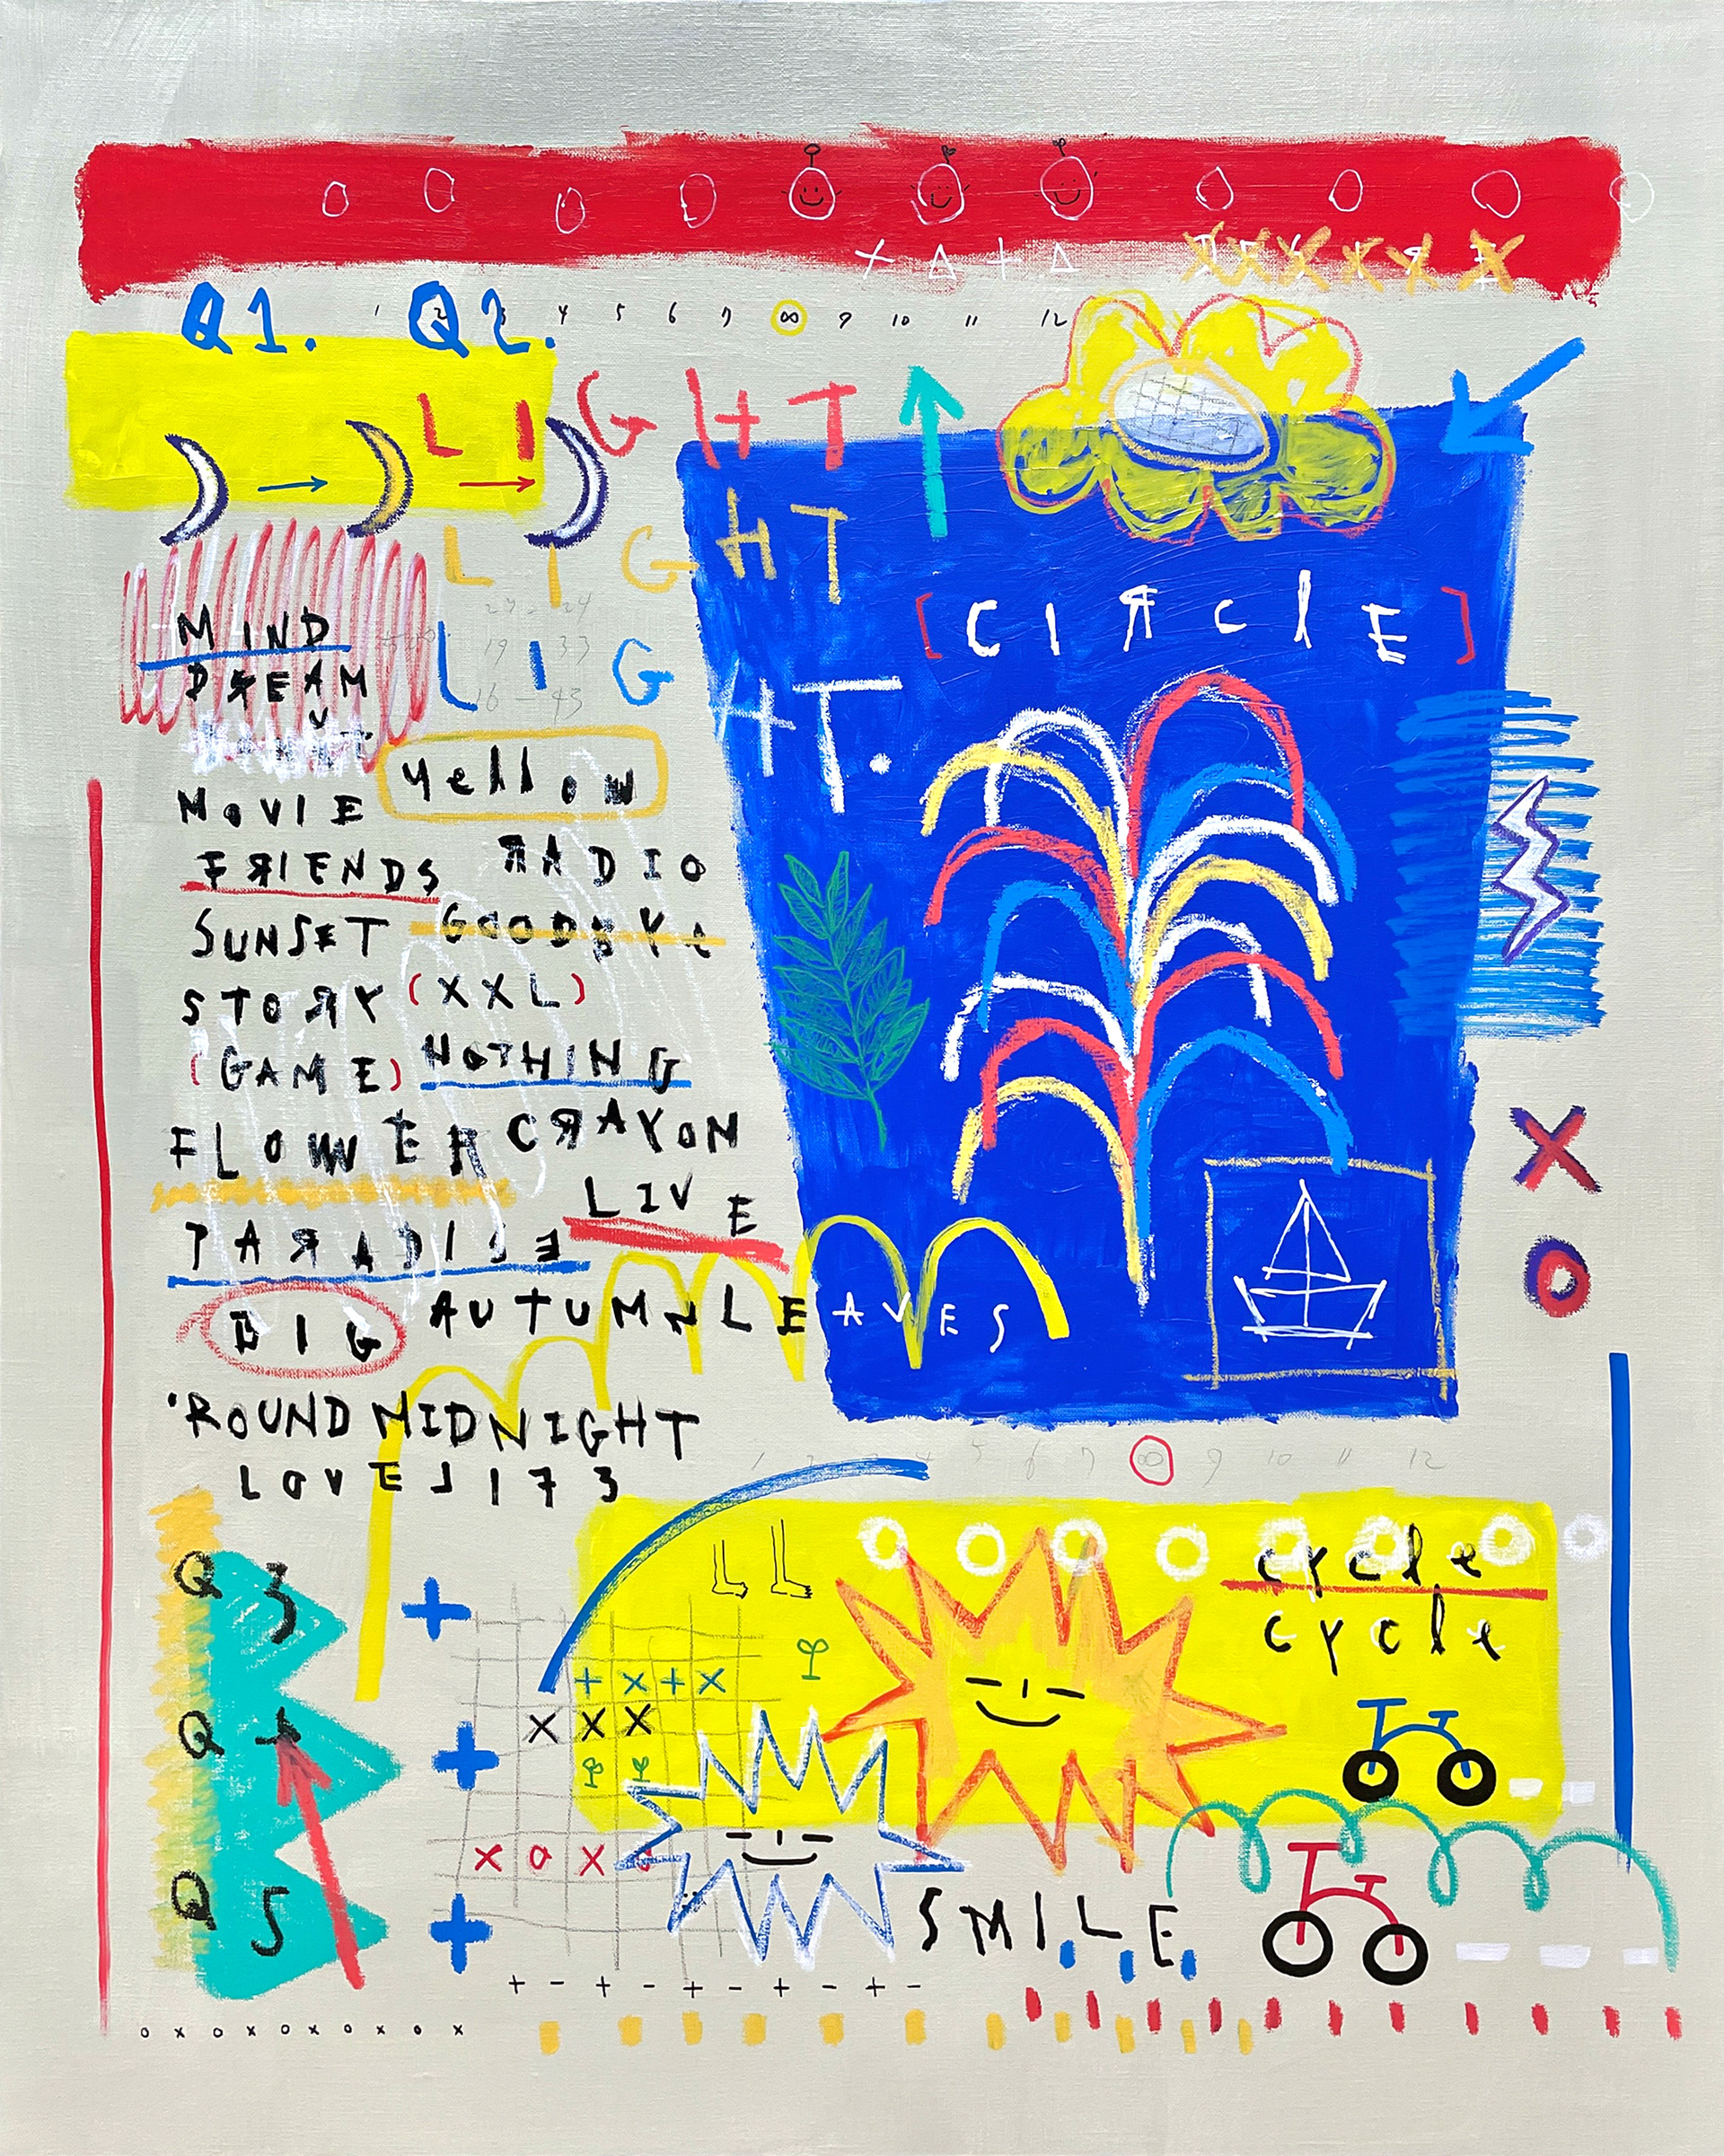 Q1. Q2.
1 2 3 4 5 6 7 ∞ 9 10 11 12
LIGHT
LIGHT
LIGHT.
[CIRCLE]
27 - 24
19 33
16 - 43
MIND
DREAM
yellow
MOVIE
FRIENDS RADIO
SUNSET GOODBYE
STORY (XXL)
(GAME) NOTHING
FLOWER CRAYON
LIVE
PARADISE
BIG AUTUMN LEAVES
'ROUND MIDNIGHT
LOVE 1173
1 2 3 4 5 6 7 ∞ 9 10 11 12
cycle
cycle
Q3
Q4
Q5
+ x + x
x x x
x o x o
SMILE
+ - + - + - + - + -
o x o x o x o x o x